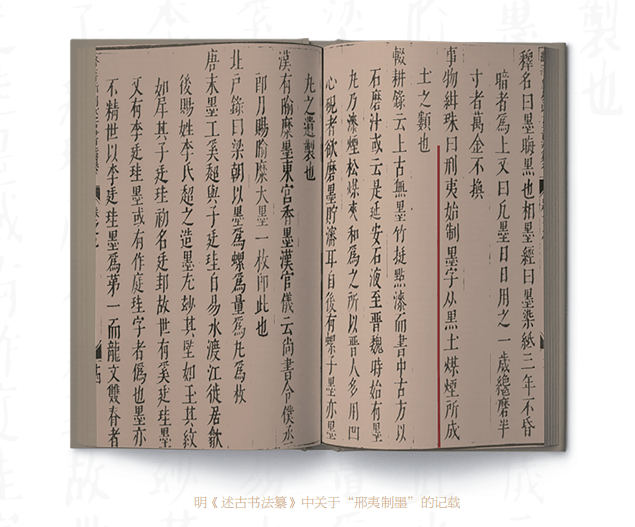 釋名曰墨晦黑也相墨經曰墨染紙三年不昏
暗者爲上又曰凡墨日日用之一歲纔磨半
寸者萬金不換
事物紺珠曰刑夷始制墨字从黑土煤煙所成
土之類也
輟耕錄云上古無墨竹挺點漆而書中古方以
石磨汁或云是延安石液至晉魏時始有墨
丸乃漆煙松煤夾和爲之所以晉人多用凹
心硯者欲磨墨貯瀋耳自後有螺子墨亦墨
丸之遺製也
漢有隃糜墨東宮香墨漢官儀云尚書令僕丞
郎月賜隃糜大墨一枚即此也
北戶錄曰梁朝以墨爲螺爲量爲丸爲枚
唐末墨工奚超與子廷珪自易水渡江徙居歙
後賜姓李氏超之造墨尤妙其堅如玉其紋
如犀其子廷珪初名廷邽故世有奚廷珪墨
又有李廷珪墨或有作庭珪字者僞也墨亦
不精世以李廷珪墨爲第一而龍文雙脊者
明《述古书法纂》中关于“邢夷制墨”的记载